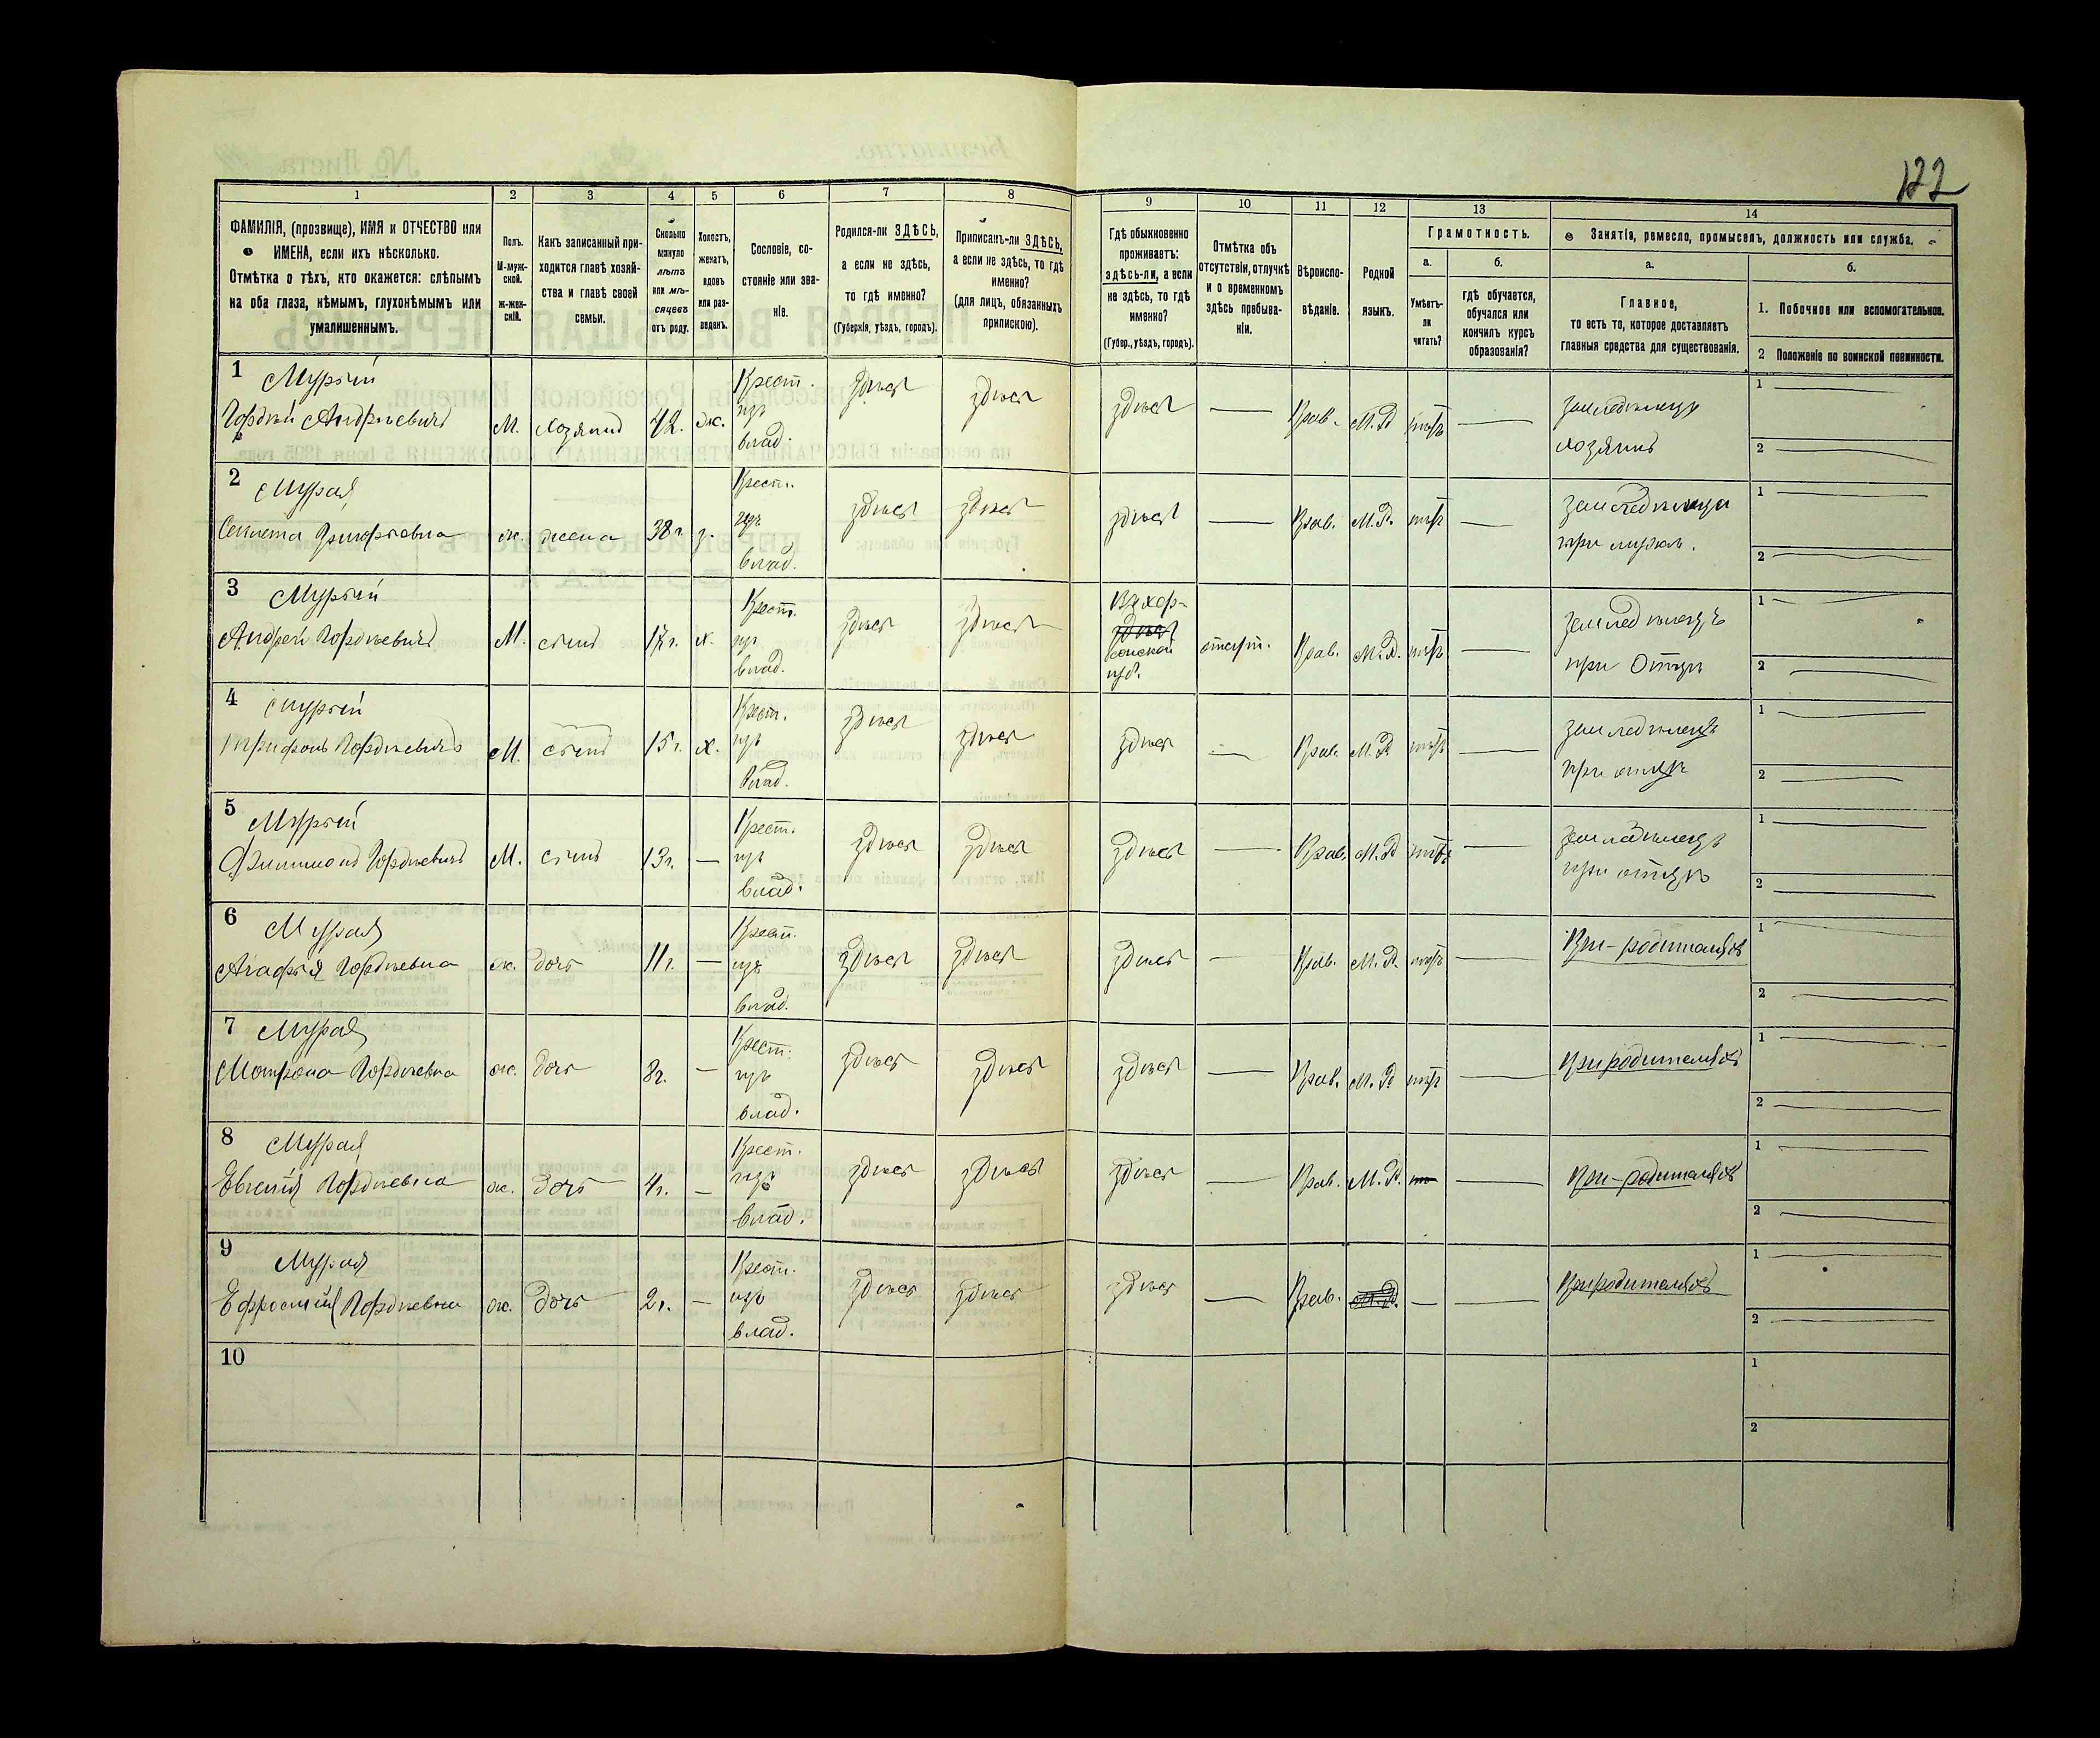 122
1 2 3 4 5 6 7 8 9 10 11 12 13 14
ФАМИЛІЯ, (прозвище), ИМЯ и ОТЧЕСТВО или
ИМЕНА, если ихъ нѣсколько.
Отмѣтка о тѣхъ, кто окажется: слѣпымъ
на оба глаза, нѣмымъ, глухонѣмымъ или
умалишеннымъ.
Полъ.
М-муж-
ской.
ж-жен-
скій.
Какъ записанный при-
ходится главѣ хозяй-
ства и главѣ своей
семьи.
Сколько
минуло
лѣтъ
или мѣ-
сяцевъ
отъ роду.
Холостъ,
женатъ,
вдовъ
или раз-
веденъ.
Сословіе, со-
стояніе или зва-
ніе.
Родился-ли ЗДѢСЬ,
а если не здѣсь,
то гдѣ именно?
(Губернія, уѣздъ, городъ).
Приписанъ-ли ЗДѢСЬ,
а если не здѣсь, то гдѣ
именно?
(для лицъ, обязанныхъ
припискою).
Гдѣ обыкновенно
проживаетъ:
здѣсь-ли, а если
не здѣсь, то гдѣ
именно?
(Губер., уѣздъ, городъ).
Отмѣтка объ
отсутствіи, отлучкѣ
и о временномъ
здѣсь пребыва-
ніи.
Вѣроиспо-
вѣданіе.
Родной
языкъ.
Грамотность.
а.
Умѣетъ-
ли
читать?
б.
гдѣ обучается,
обучался или
кончилъ курсъ
образованія?
Занятія, ремесло, промыселъ, должность или служба.
а.
Главное,
то есть то, которое доставляетъ
главныя средства для существованія.
б.
1. Побочное или вспомогательное.
2 Положеніе по воинской повинности.
1 Мурый
Гордѣй Андрѣевичъ М. хозяинъ 42. ж. Крест. изъ влад. здѣсь здѣсь здѣсь — Прав. М.Р нѣтъ — земледѣлецъ хозяинъ 1 — 2 —
2 Мурая
Григорьевна ж. жена 38 г. з. Крест. изъ влад. здѣсь здѣсь здѣсь — Прав. М.Р. нѣтъ — при мужѣ. 1 — 2 —
3 Мурый
Андрей Гордѣевичъ М. сынъ 17 г. х. Крест. изъ влад. здѣсь здѣсь В Хер-
сонской
губ. Прав. М.Р. нѣтъ — земледѣлецъ при Отцѣ 1 — 2 —
4 Мурый
Трифонъ Гордѣевичъ М. сынъ 15 г. х. Крест. изъ влад. здѣсь здѣсь здѣсь — Прав. М.Р нѣтъ — земледѣлецъ при отцѣ 1 — 2 —
5 Мурый
Филимонъ Гордѣевичъ М. сынъ 13 г. — Крест. изъ влад. здѣсь здѣсь здѣсь — Прав. М.Р нѣтъ — земледѣлецъ при отцѣ 1 — 2 —
6 Мурая
Агафья Гордѣевна ж. дочь 11 г. — Крест. изъ влад. здѣсь здѣсь здѣсь — Прав. М.Р. нѣтъ — При-родителяхъ 1 — 2 —
7 Мурая
Матрона Гордѣевна ж. дочь 8 г. — Крест. изъ влад. здѣсь здѣсь здѣсь — Прав. М.Р нѣтъ — При родителяхъ 1 — 2 —
8 Мурая
Евгенія Гордѣевна ж. дочь 4 г. — Крест. изъ влад. здѣсь здѣсь здѣсь — Прав. М.Р. — При-родителяхъ 1 — 2 —
9 Мурая
Ефросинія Гордѣевна ж. дочь 2 г. — Крест. изъ влад. здѣсь здѣсь здѣсь — Прав. М.Р. — — При родителяхъ 1 — 2 —
10 1 2